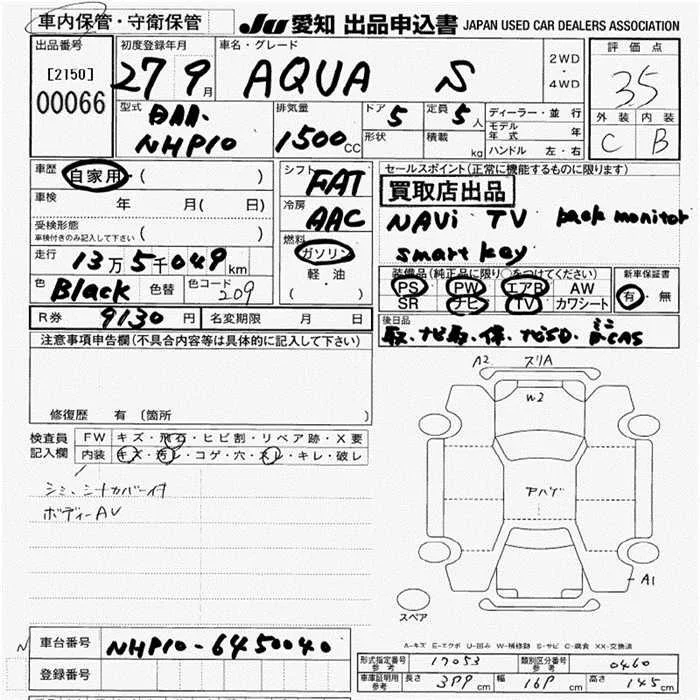 車内保管・守衛保管 JU 愛知 出品申込書 JAPAN USED CAR DEALERS ASSOCIATION
出品番号 初度登録年月 車名・グレード 2WD・4WD 評価点
[2150] 27 9月 AQUA S 35
00066
型式 DAA- NHP10 排気量 1500CC ドア 5 定員 5人 ディーラー・並行 外装 内装
形状 積載 kg モデル年式 年 C B
ハンドル 左・右
車歴 自家用・( ) シフト FAT セールスポイント(正常に機能するものに限ります)
車検 年 月( 日) 冷房 AAC 買取店出品
受検形態 NAVi TV back monitor
車検付きのみ記入して下さい ( ) 燃料 ガソリン smart key
走行 13万5千049km 軽・油 装備品(純正品に限り○をつけてください) 新車保証書
色 Black 色替 色コード 209 ( ) PS PW エアB AW 有・無
SR ナビ TV カワシート
R券 9130円 名変期限 月 日 後日品
注意事項申告欄(不具合内容等は具体的に記入して下さい) 取、ナビ取、保、ナビSD、ミニB-CAS
修復歴 有(箇所 )
検査員記入欄 FW キズ・飛石・ヒビ割・リペア跡・X要
内装 キズ・汚レ・コゲ・穴・スレ・キレ・破レ
シミ、シートカバー付
ボディーAU
A2 スリA
W2
アハゲ
A1
スペア
A-キズ E-エクボ U-凹み W-補修跡 S-サビ C-腐食 XX-交換済
車台番号 NHP10-6450040
登録番号
形式指定番号 参考 17053 類別区分番号 参考 0460
車庫証明用 参考 長さ 399cm 幅 169cm 高さ 145cm